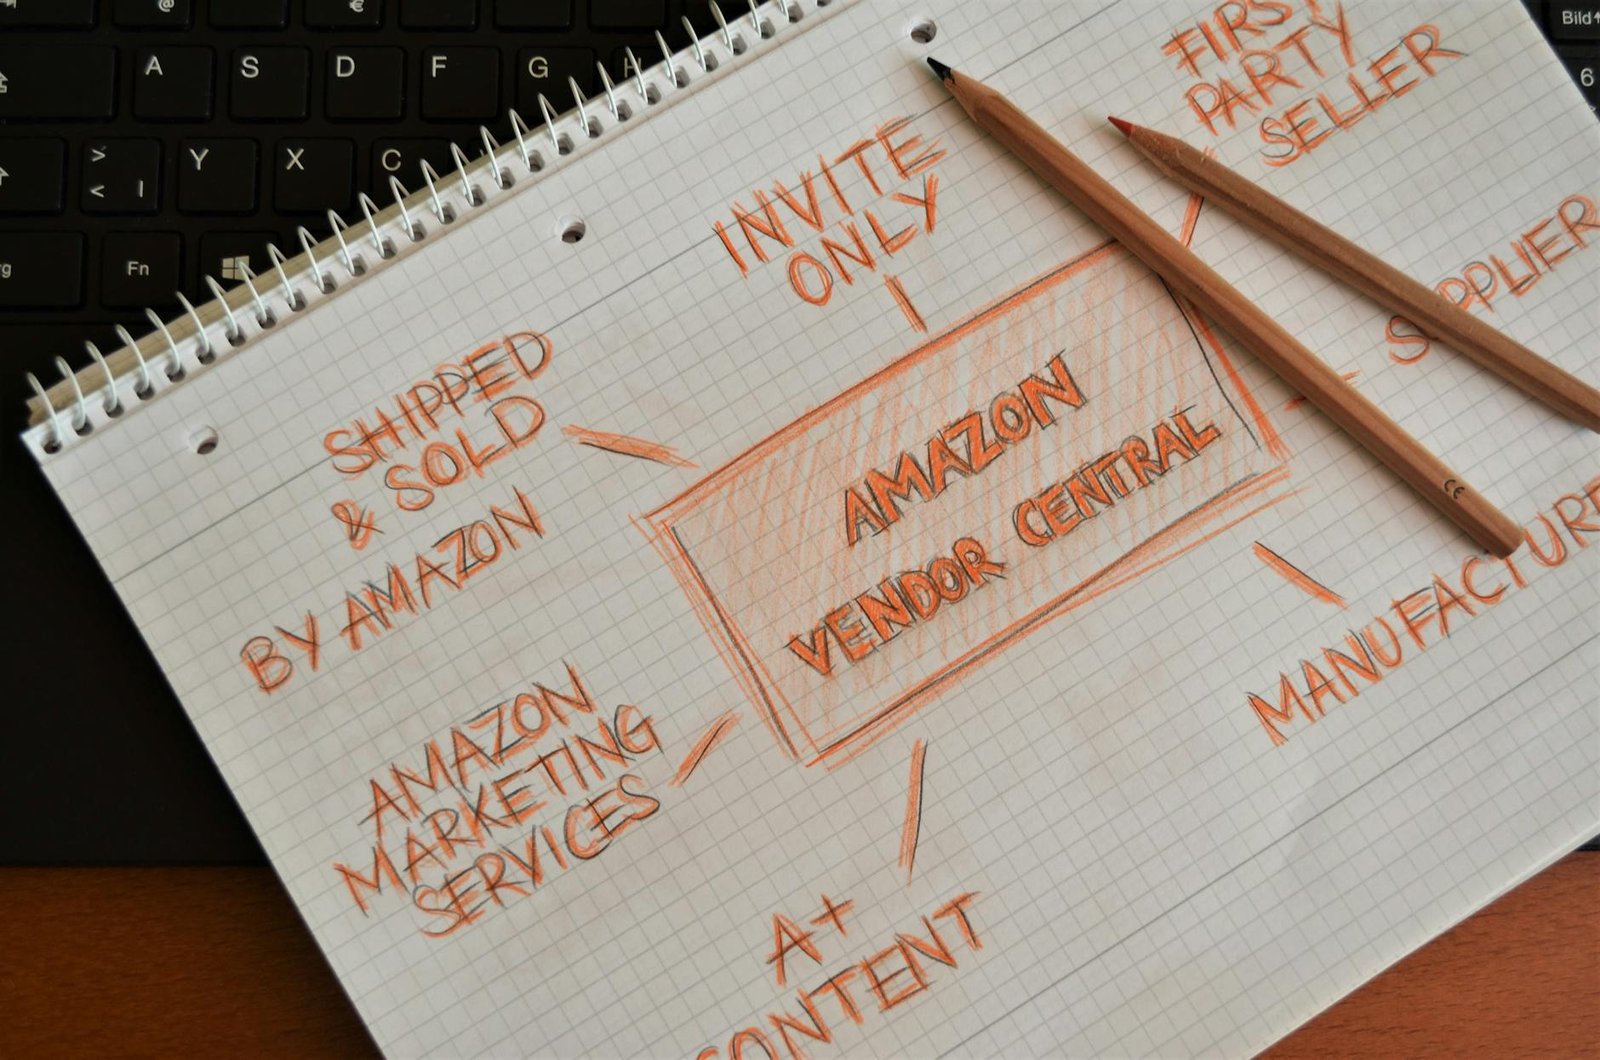 @
€
A S D F G H
> < |
Y X C
Fn
Bild
6
FIRST
PARTY
SELLER
INVITE
ONLY
SUPPLIER
SHIPPED
& SOLD
BY AMAZON
AMAZON
VENDOR CENTRAL
CE
MANUFACTURE
AMAZON
MARKETING
SERVICES
A+
CONTENT